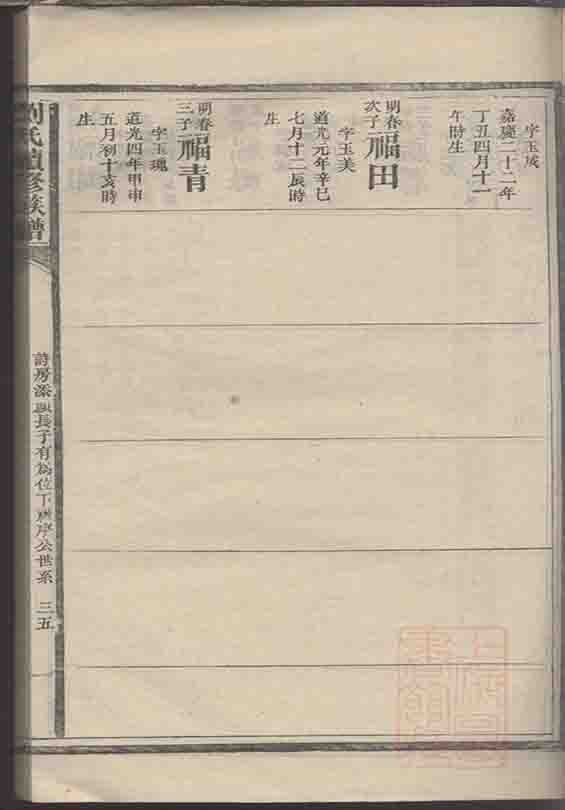 字玉成
嘉慶二十二年
丁丑四月十一
午時生
明春
次子
福田
字玉美
道光元年辛巳
七月十二辰時
生
明春
三子
福青
字玉瑰
道光四年甲申
五月初十亥時
生
劉氏續修族譜
詩房添長子有為位下 序公世系
三五